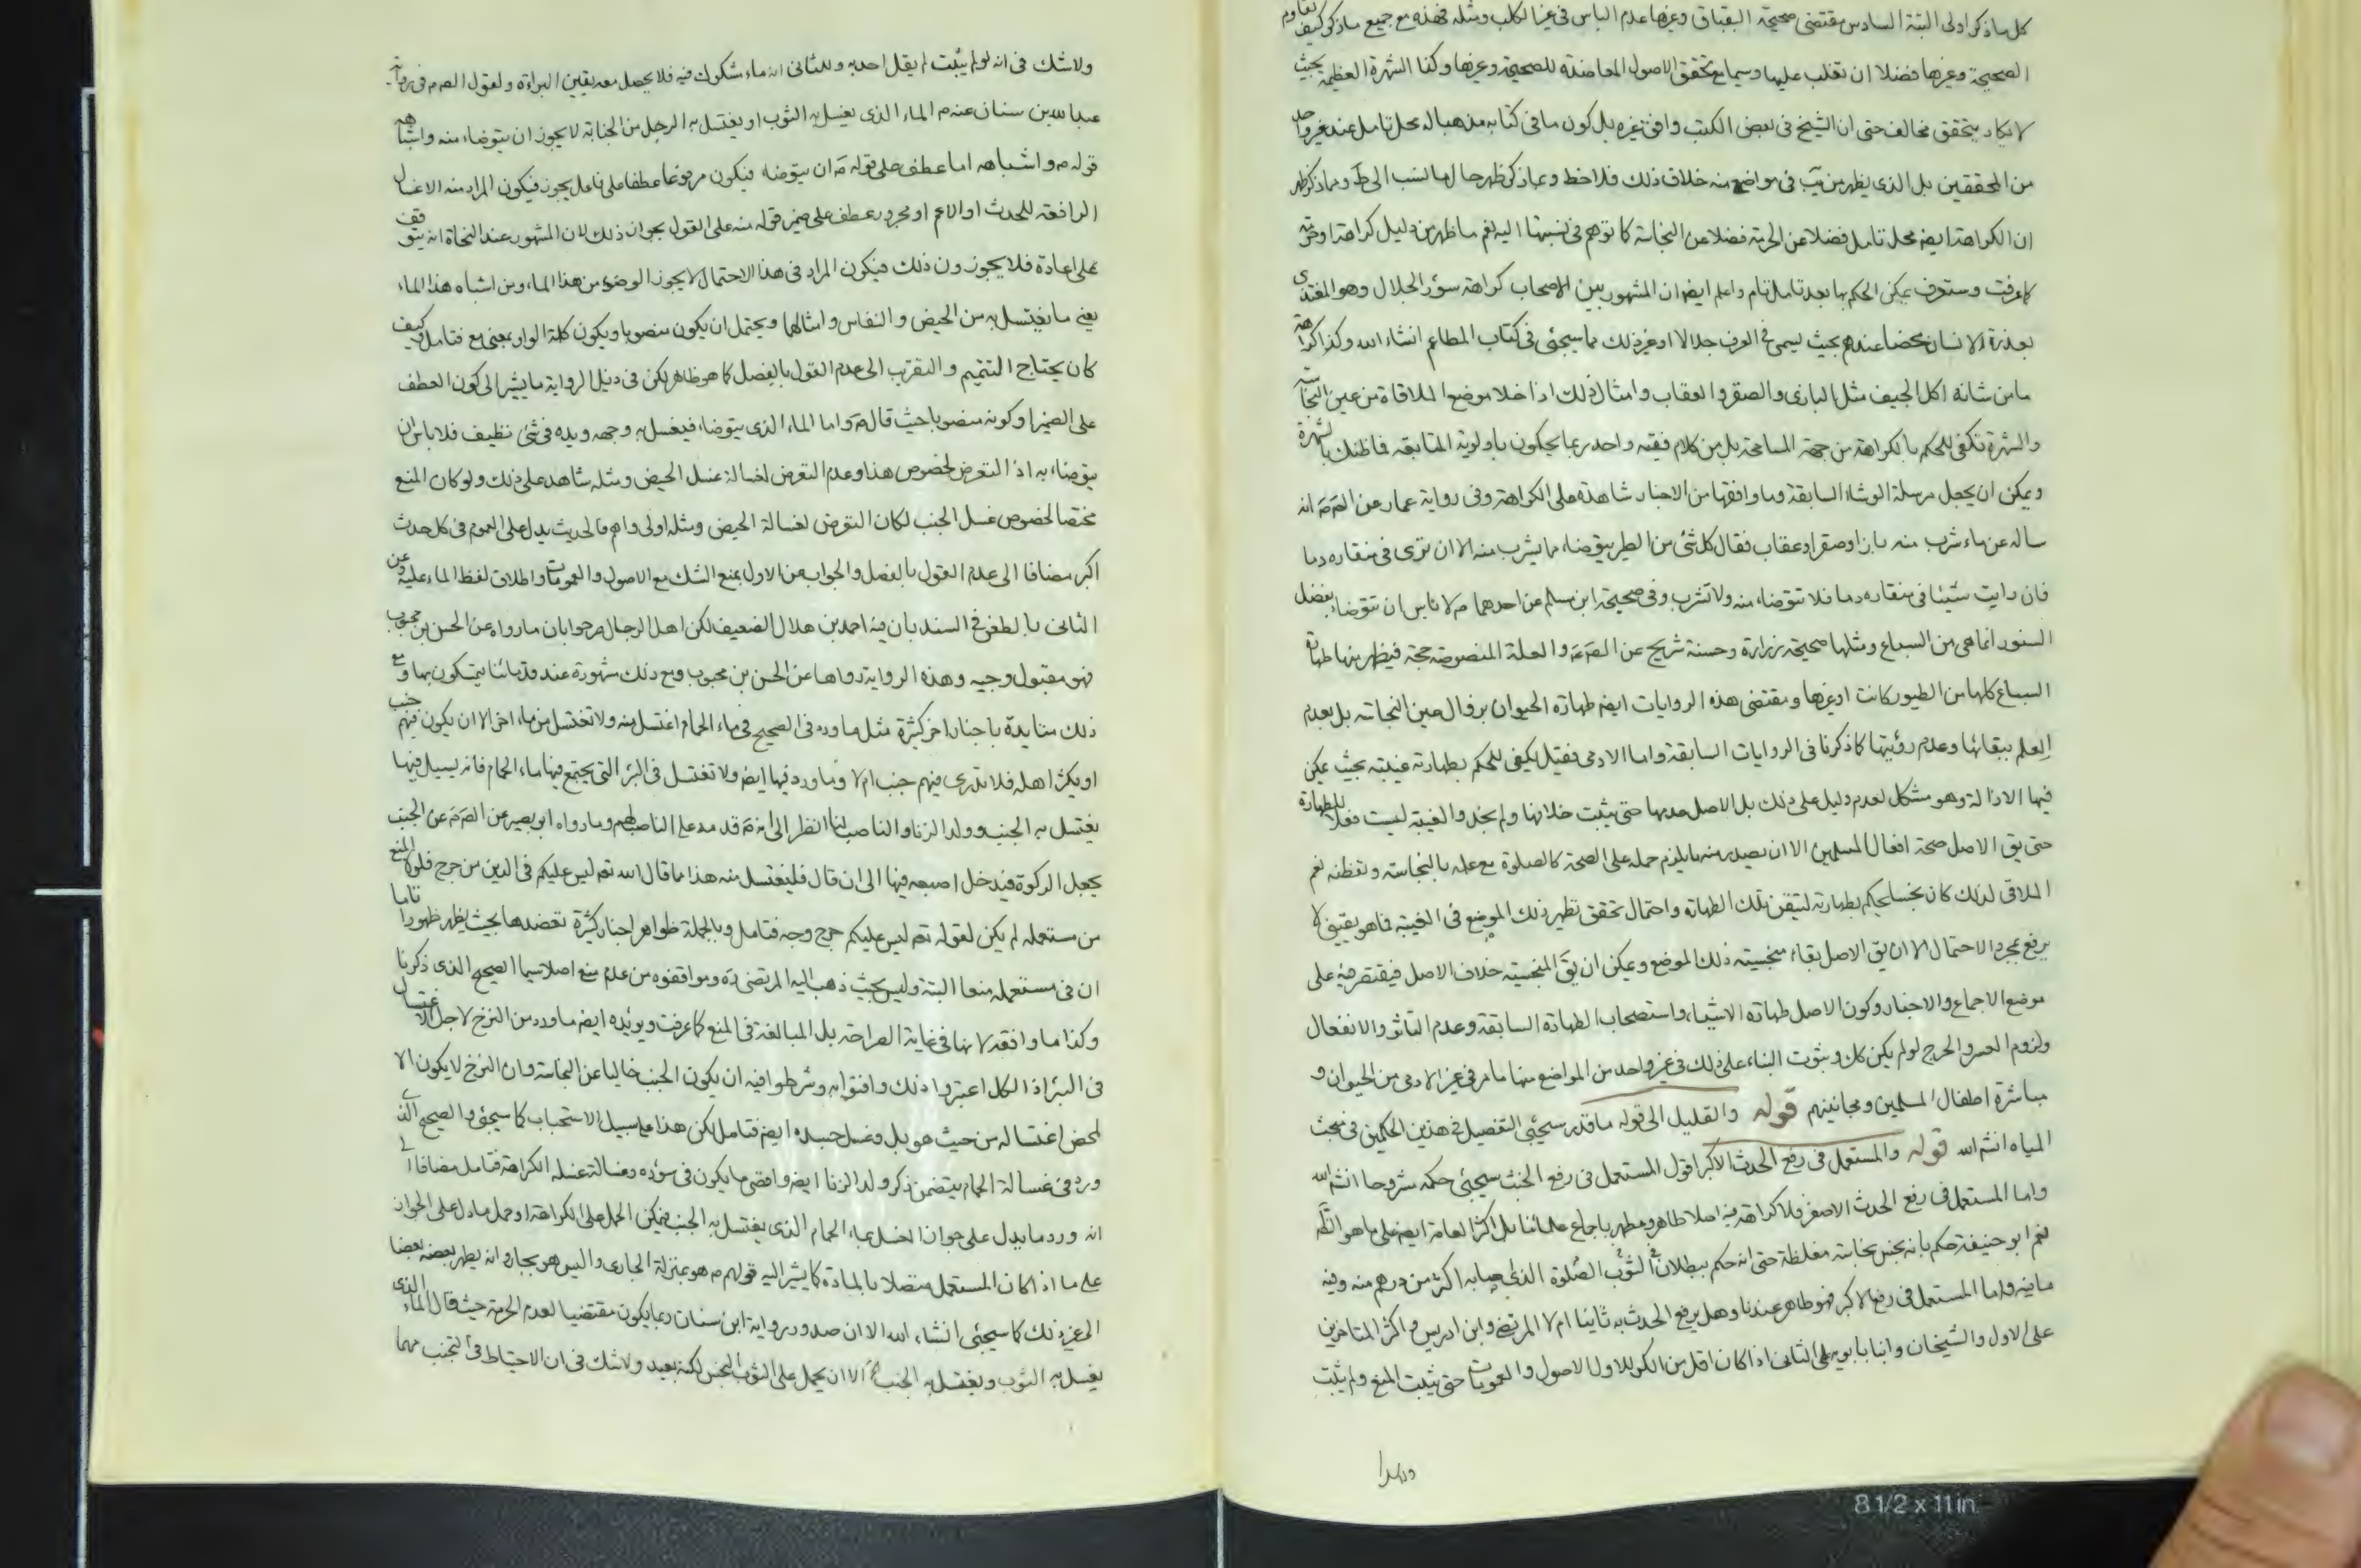 كل ما ذكر اولى البتة السادس مقتضى صحيحة البقباق وغيرها عدم الباس في غير الكلب ومثله فهذه مع جميع ما ذكر كيف تقاوم
الصحيحة وغيرها فضلا ان تغلب عليها وسيما مع تحقق الاصول المعاضدة للصحيحة وغيرها وكذا الشهرة العظيمة بحيث
لا يكاد يتحقق مخالف حتى ان الشيخ في بعض الكتب وافق غيره بل كون ما في كتابه مذهبا له محل تامل عند غير واحد
من المحققين بل الذي يظهر من يب في مواضع منه خلاف ذلك فلاحظ ومما ذكر ظهر حال ما نسب الى ط ومما ذكر ظهر
ان الكراهة ايضا محل تامل فضلا عن الحرمة فضلا عن النجاسة كما توهم في نسبتها اليه نعم ما ظهر من دليل كراهة او حرمة
كما عرفت وستعرف يمكن الحكم بها بعد تامل تام واعلم ايضا ان المشهور بين الاصحاب كراهة سؤر الجلال وهو المغتذى
بعذرة الانسان محضا عندهم بحيث يسمى في العرف جلالا او غير ذلك مما سيجئ في كتاب المطاعم انشاء الله وكذا كراهة
ما من شانه اكل الجيف مثل البازى والصقر والعقاب وامثال ذلك اذا خلا موضع الملاقاة من عين النجاسة
والشهرة تكفى للحكم بالكراهة من جهة المسامحة بل من كلام فقيه واحد ربما يحكمون باولوية المتابعة فما ظنك بالشهرة
ويمكن ان يجعل مرسلة الوشاء السابقة وما وافقها من الاخبار شاهدة على الكراهة وفى رواية عمار عن الص ع انه
ساله عن ماء شرب منه باز او صقر او عقاب فقال كل شئ من الطير يتوضاء مما يشرب منه الا ان ترى في منقاره دما
فان رايت شيئا في منقاره دما فلا تتوضاء منه ولا تشرب وفى صحيحة ابن مسلم عن احدهما م لا باس ان تتوضاء بفضل
السنور انما هي من السباع ومثلها صحيحة زرارة وحسنة شريح عن الص ع والعلة المنصوصة حجة فيظهر منها طهارة
السباع كلها من الطيور كانت او غيرها ومقتضى هذه الروايات ايضا طهارة الحيوان بزوال عين النجاسة بل بعدم
العلم ببقائها وعدم رؤيتها كما ذكرنا في الروايات السابقة واما الادمى فقيل يكفى للحكم بطهارته غيبته بحيث يمكن
فيها الازالة وهو مشكل لعدم دليل على ذلك بل الاصل عدمها حتى يثبت خلافها ولم نجد والغيبة ليست فعلا للطهارة
حتى يق الاصل صحة افعال المسلمين الا ان يصدر منه ما يلزم حمله على الصحة كالصلوة مع علمه بالنجاسة وتفطنه نعم
الملاقى لذلك كان نجسا يحكم بطهارته لتيقن تلك الطهارة واحتمال تحقق تطهير ذلك الموضع في الغيبة فما هو يقيني لا
يرفع بمجرد الاحتمال الا ان يق الاصل بقاء منجسيته ذلك الموضع ويمكن ان يق المنجسية خلاف الاصل فيقتصر فيه على
موضع الاجماع والاخبار وكون الاصل طهارة الاشياء واستصحاب الطهارة السابقة وعدم التاثر والانفعال
ولزوم العسر والحرج لو لم يكن كك وثبوت البناء على ذلك في غير واحد من المواضع منها ما مر في غير الادمى من الحيوان و
مباشرة اطفال المسلمين ومجانينهم قوله والقليل الى قوله ما قدر سيجئ التفصيل في هذين الحكمين في مبحث
المياه انشم الله قوله والمستعمل في رفع الحدث الاكبر اقول المستعمل في رفع الخبث سيجئ حكمه مشروحا انشم الله
واما المستعمل في رفع الحدث الاصغر فلا كراهة فيه اصلا طاهر ومطهر باجماع علمائنا بل اكثر العامة ايضا على ما هو الظ
نعم ابو حنيفة حكم بانه نجس نجاسة مغلظة حتى انه حكم ببطلان الصلوة في الثوب الذي اصابه اكثر من درهم منه وفيه
ما فيه واما المستعمل في رفع الاكبر فهو طاهر عندنا وهل يرفع الحدث به ثانيا ام لا المرتضى وابن ادريس واكثر المتاخرين
على الاول والشيخان وابنا بابويه على الثانى اذا كان اقل من الكر للاول الاصول والعمومات حتى يثبت المنع ولم يثبت
ولاشك في انه لو لم يثبت لم يقل احد به وللثانى انه ماء مشكوك فيه فلا يحصل معه يقين البراءة ولقول الص م في رواية
عبد الله بن سنان عنه م الماء الذى يغسل به الثوب او يغتسل به الرجل من الجنابة لا يجوز ان يتوضاء منه واشباهه
قوله م واشباهه اما عطف على قوله م ان يتوضاء فيكون مرفوعا عطفا على فاعل يجوز فيكون المراد منه الاغسال
الرافعة للحدث او الاعم او مجرور عطف على ضمير قوله منه على القول بجواز ذلك لان المشهور عند النحاة انه يتوقف
على اعادة فلا يجوز دون ذلك فيكون المراد في هذا الاحتمال لا يجوز الوضوء من هذا الماء ومن اشباه هذا الماء
يعنى ما يغتسل به من الحيض والنفاس وامثالهما ويحتمل ان يكون منصوبا ويكون كلمة الواو بمعنى مع فتامل وكيف
كان يحتاج التتميم والتقريب الى عدم القول بالفصل كما هو ظاهر لكن في ذيل الرواية ما يشير الى كون العطف
على الضمير او كونه منصوبا حيث قال م واما الماء الذى يتوضاء فيغسل به وجهه ويده في شئ نظيف فلا باس ان
يتوضاء به اذ التعرض لخصوص هذا وعدم التعرض لغسالة غسل الحيض ومثله شاهد على ذلك ولو كان المنع
مختصا لخصوص غسل الجنب لكان التعرض لغسالة الحيض ومثله اولى واهم فالحديث يدل على العموم في كل حدث
اكبر مضافا الى عدم القول بالفصل والجواب عن الاول بمنع الشك مع الاصول والعمومات واطلاق لفظ الماء عليه وعن
الثانى بالطعن في السند بان فيه احمد بن هلال الضعيف لكن اهل الرجال صرحوا بان ما رواه عن الحسن بن محبوب
فهو مقبول وجيه وهذه الرواية رواها عن الحسن بن محبوب ومع ذلك مشهورة عند قدمائنا يتمسكون بها ومع
ذلك متايدة باخبار اخر كثيرة مثل ما ورد في الصحيح في ماء الحمام اغتسل منه ولا تغتسل من ماء اخر الا ان يكون فيهم جنب
او يكثر اهله فلا تدرى فيهم جنب ام لا وما ورد فيها ايضا ولا تغتسل في البئر التى يجتمع فيها ماء الحمام فانه يسيل فيها
يغتسل به الجنب وولد الزنا والناصب لنا انظر الى انه م قدمه على الناصب لهم وما رواه ابو بصير عن الص م عن الجنب
يجعل الركوة فيدخل اصبعه فيها الى ان قال فليغتسل منه هذا مما قال الله تعم ليس عليكم في الدين من حرج فلولا المنع
من مستعمله لم يكن لقوله تعم ليس عليكم حرج وجه فتامل وبالجملة ظواهر اخبار كثيرة تعضدها بحيث يظهر ظهورا تاما
ان في مستعمله منعا البتة وليس بحيث ذهب اليه المرتضى ره وموافقوه من عدم منع اصلا سيما الصحيح الذى ذكرنا
وكذا ما وافقه لانها في غاية الصراحة بل المبالغة في المنع كما عرفت ويؤيده ايضا ما ورد من النزح لاجل الاغتسال
في البئر اذ الكل اعتبروا ذلك وافتوا به وشرطوا فيه ان يكون الجنب خاليا عن النجاسة وان النزح لا يكون الا
لمحض اغتساله من حيث هو بل وغسل جسده ايضا فتامل لكن هذا على سبيل الاستحباب كما سيجئ والصحيح الذى
ورد في غسالة الحمام يتضمن ذكر ولد الزنا ايضا واقصى ما يكون في سؤره وغسالة غسله الكراهة فتامل مضافا الى
انه ورد ما يدل على جواز الغسل بماء الحمام الذى يغتسل به الجنب فيمكن الحمل على الكراهة او حمل ما دل على الجواز
على ما اذا كان المستعمل متصلا بالمادة كما يشير اليه قولهم م هو بمنزلة الجارى واليس هو بجار وانه يطهر بعضه بعضا
الى غير ذلك كما سيجئ انشاء الله الا ان صدور رواية ابن سنان ربما يكون مقتضيا لعدم الحرمة حيث قال الماء الذى
يغسل به الثوب ويغتسل به الجنب الا ان يحمل على الثوب النجس لكنه بعيد ولاشك في ان الاحتياط في التجنب مهما
8 1/2 x 11 in.